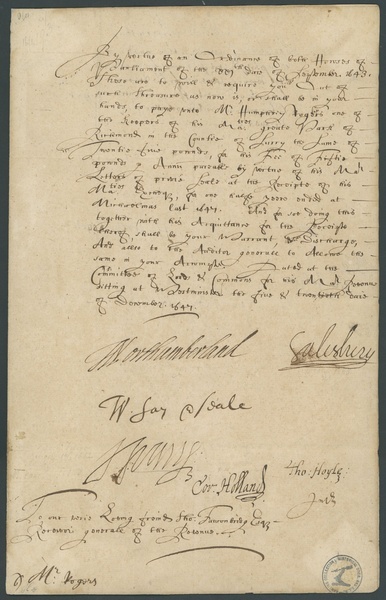 By vertue of an Ordinance of both Houses of
Parliament of the xxjth daie of September 1643.
These are to will & require you Out of
such threasure as now is, or shall be in your
hands, to paye unto Mr Humphrey
the Keepers of his Mats greate Parke of
Richmond in the Countie of Surry the Some of
Twentie five pounds, for his Fee of Fiftie
pounds p Ann payable by vertue of his Mats
Letters of privie Seale at the Receipte of his
Mats Excheqr, for one halfe yeere ended at
Michaelmas last 1647. And for soe doing this
together with his Acquittance for the Receipte
thereof, shall be your Warrant, & discharge,
And alsoe to the Auditor generall to Allowe the
same in your Accompte. Dated at the
Committee of Lords & Commons for his Mats Revenue
sitting at Westminster the five & twentieth daie
of December. 1647.
Northumberland Salesbury
W Say & Seale
Cor: Holland Tho: Hoyle:
To our verie Loving friend Tho: Fauconbridg Esqr
Receivor generall of the Revenue
Mr